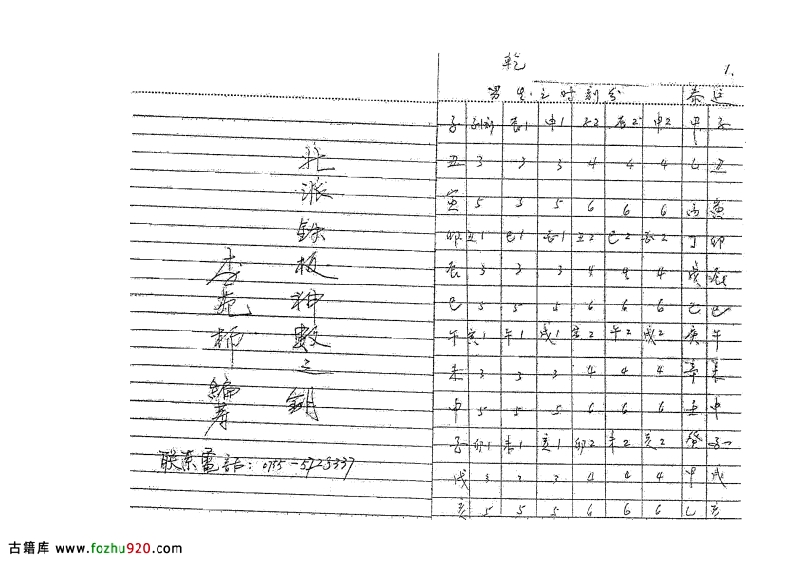 乾 1.
男生之时刻分 泰 运
子 子1 辰1 申1 子2 辰2 申2 甲 子
丑 3 3 3 4 4 4 乙 丑
寅 5 5 5 6 6 6 丙 寅
卯 丑1 巳1 2 巳2 丁 卯
辰 3 3 3 4 4 4 戊 辰
巳 5 5 5 6 6 6 己 巳
午 1 午1 戌1 2 午2 戌2 庚 午
未 3 3 3 4 4 4 辛 未
申 5 5 5 6 6 6 壬 申
卯1 未1 亥1 卯2 未2 亥2 癸
戌 3 3 3 4 4 4 甲 戌
亥 5 5 5 6 6 6 乙 亥
铁板神数之钥
编著
联系電话: 0755-5728337
古籍库 www.fozhu920.com